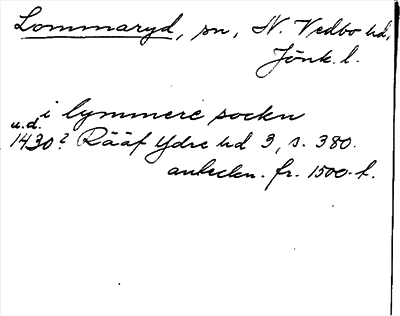 Lommaryd, sn, N. Vedbo hd,
Jönk. l.
i lymmere socken
u.d.
1430? Rääf Ydre hd 3, s. 380.
anteckn. fr. 1500-t.